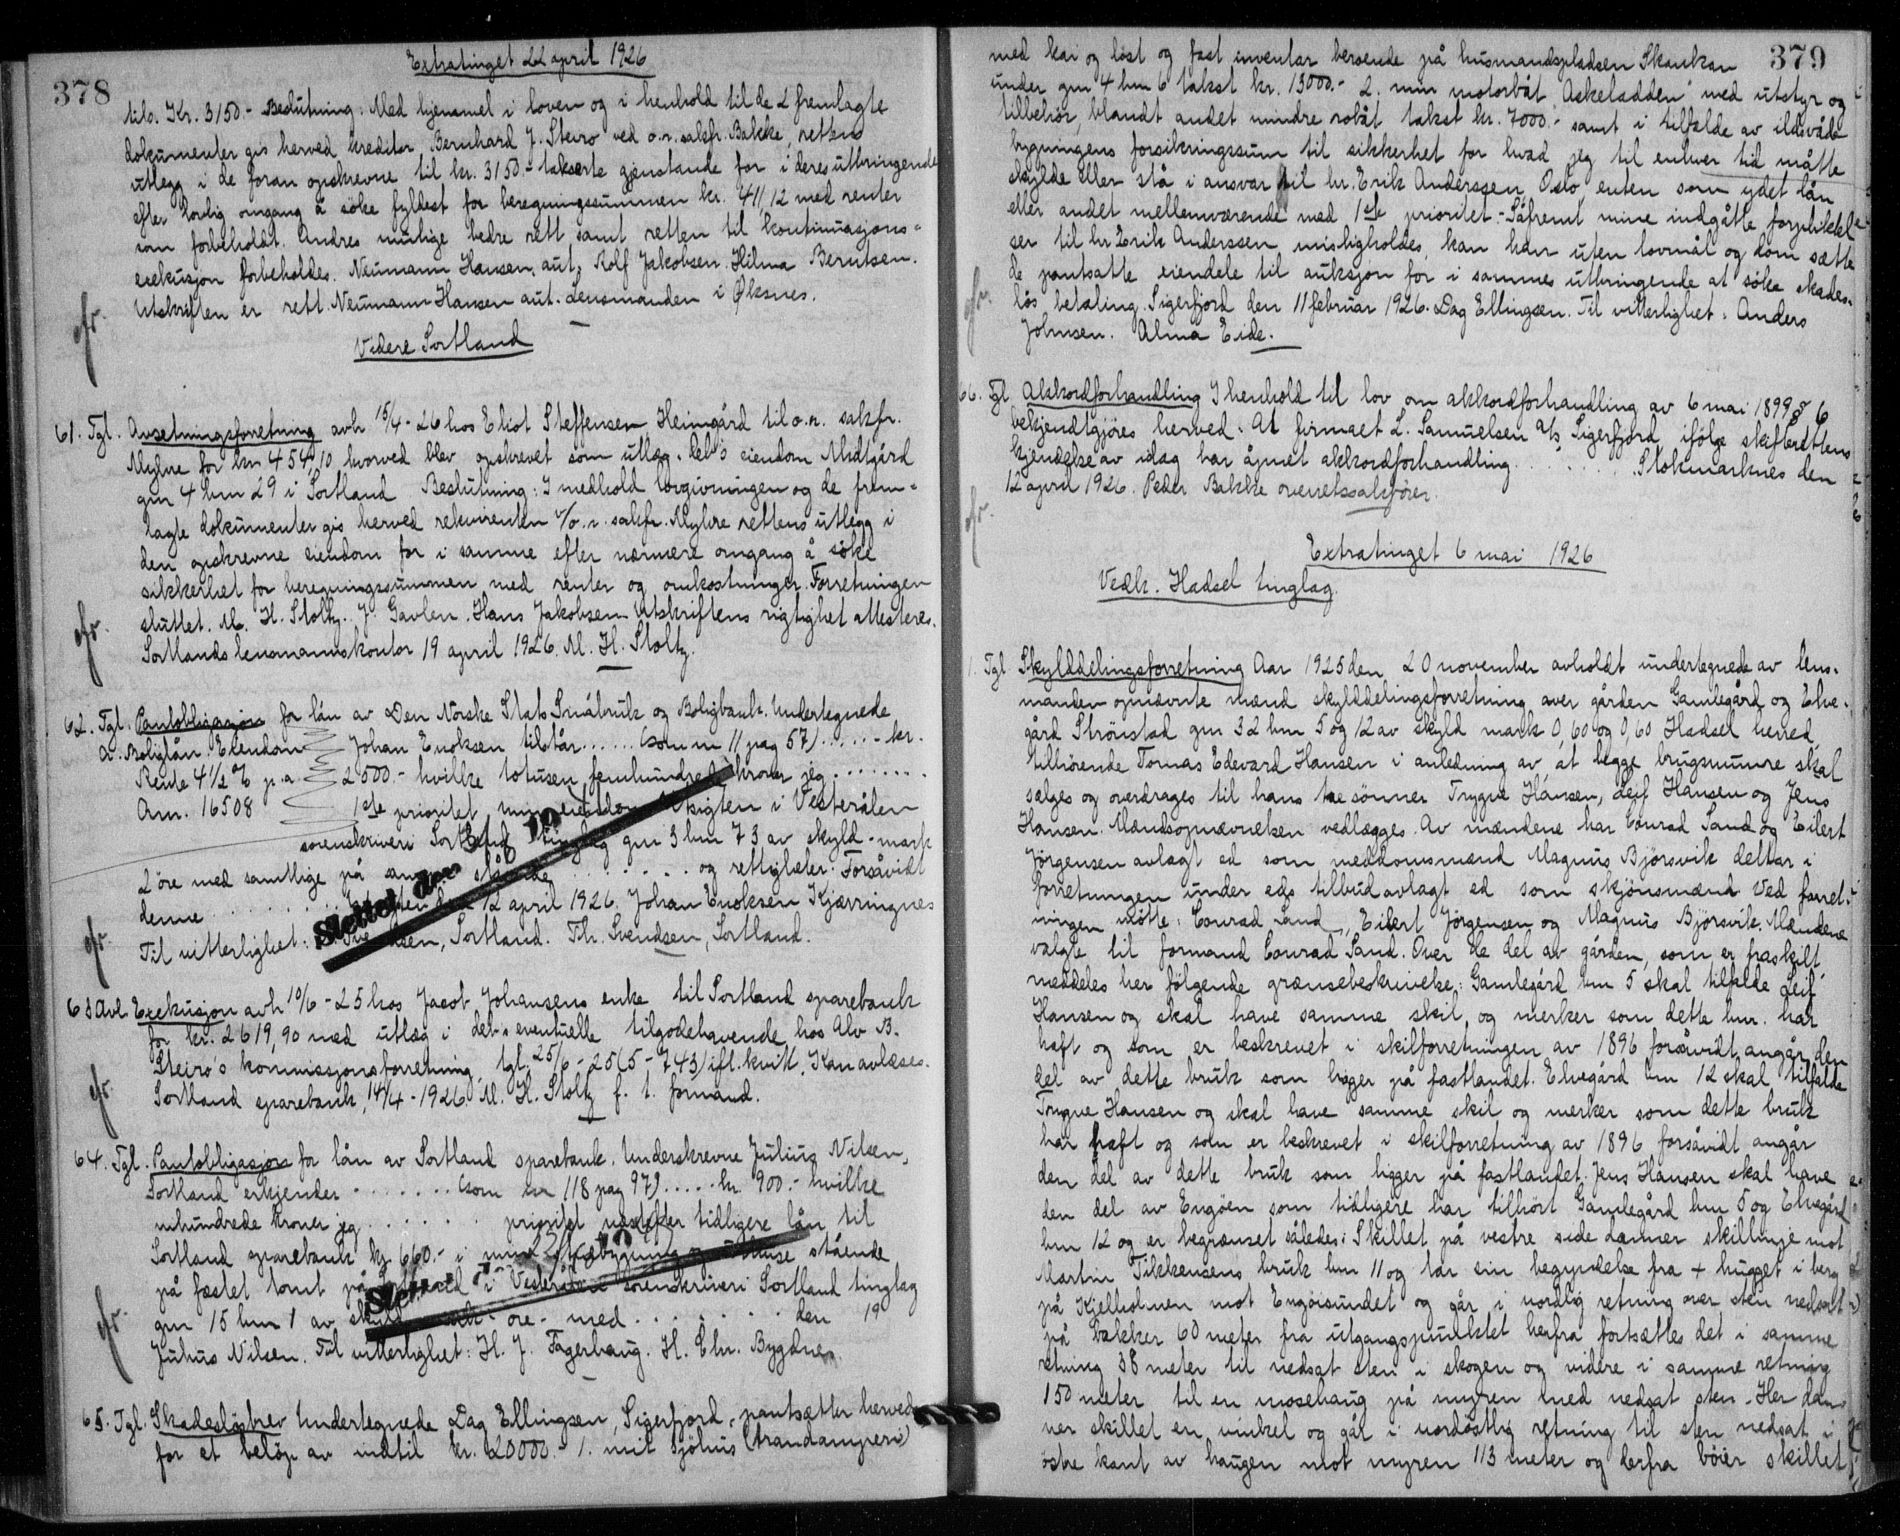 378
Extratinget 22 april 1926
tils. Kr. 3150.- Beslutning: Med hjemmel i loven og i henhold til de 2 fremlagte
dokumenter gis herved kreditor Bernhard J. Steiro ved o.r. sakfr. Bakke, rettens
utlegg i de foran opskrevne til kr. 3150.- takserte gjenstande for i deres utbringende
efter lovlig omgang å søke fyldest for beregningssummen kr. 411,12 med renter
som forbeholdt. Andres mulige bedre rett samt retten til kontinuasjons=
exekusjon forbeholdes. Neumann Hansen, aut. Rolf Jakobsen. Hilma Berntsen.
Utskriften er rett. Neumann Hansen aut. Lensmanden i Øksnes.
Videre Sortland
61. Tgl. Avsetningsforretning avh 15/4-26 hos Eliot Steffensen Heimgård til o.r. sakfr.
Myhre for kr 454,10 hvorved blev opskrevet som utlæg. deb's eiendom Midtgård
gnr 4 bnr 29 i Sortland. Beslutning: I medhold lovgivningen og de frem=
lagte dokumenter gis herved rekvirenten v/o.r. sakfr. Myhre rettens utlegg i
den opskrevne eiendom for i samme efter nærmere omgang å søke
sikkerhet for beregningssummen med renter og omkostninger. Forretningen
sluttet. M. H. Stoltz. J. Gavlen. Hans Jakobsen. Utskriftens rigtighet attesteres.
Sortlands lensmannskontor 19 april 1926. M. H. Stoltz.
62. Tgl. Pantobligasjon for lån av Den Norske Stats Småbruk og Boligbank. Undertegnede
A. Boliglån. Eiendom Johan Enoksen tilstår ...... (som nr 11 pag 57) ...... kr.
Rente 4 1/2 % p.a. 2500.- hvilke totusen femhundrede kroner jeg ........
Anr. 16508 1ste prioritet min eiendom Utsigten i Vesterålen
sorenskriveri Sortland tinglag gnr 3 bnr 73 av skyld - mark
2 øre med samtlige på samme stående ........ og rettigheter. Forsåvidt
denne ............ den 12 april 1926. Johan Enoksen Kjærringnes
Til vitterlighet: Svendsen, Sortland. Th. Svendsen, Sortland.
Slettet den
63 Avl. Exekusjon avh 10/6-25 hos Jacob Johansens enke til Sortland sparebank
for kr. 2619,90 med utlæg i deb's eventuelle tilgodehavende hos Alv B.
Steirø's kommissjonsforretning, tgl. 25/6-25 (5-743) ifl. kvitt. Kan avlæses.
Sortland sparebank, 14/4-1926. M. H. Stoltz f. t. formand.
64. Tgl. Pantobligasjon for lån av Sortland sparebank. Underskrevne Julius Nilsen,
Sortland erkjender ........ (som nr 118 pag 97) ..... kr. 900.- hvilke
nihundrede kroner jeg ....... prioritet næstefter tidligere lån til
Sortland sparebank kr 660.- i min træbygning stående
på fæstet tomt på i Vesterålen sorenskriveri Sortland tinglag
gnr 15 bnr 1 av skyld øre - med ....... den 19
Julius Nilsen. Til vitterlighet: H. J. Fagerhaug. H. Chr. Bygdnes
65. Tgl. Skadesløsbrev Undertegnede Dag Ellingsen, Sigerfjord, pantsætter herved
for et beløp av indtil kr. 20000.- 1. mit sjøhus (trandamperi)
379
med kai og løst og fast inventar beroende på husmandspladsen Skankan
under gnr 4 bnr 6 takst kr. 13000.- 2. min motorbåt "Askeladden" med utstyr og
tilbehør, blandt andet mindre robåt takst kr. 7000.- samt i tilfælde av ildsvåde
bygningens forsikringssum til sikkerhet for hvad jeg til enhver tid måtte
skylde eller stå i ansvar til hr. Erik Anderssen, Oslo, enten som ydet lån
eller andet mellemværende med 1ste prioritet.- Såfremt mine indgåtte forpliktel=
ser til hr Erik Anderssen misligholdes, kan han uten lovmål og dom sætte
de pantsatte eiendele til auksjon for i sammes utbringende at søke skades=
løs betaling. Sigerfjord den 11 februar 1926. Dag Ellingsen. Til vitterlighet: Anders
Johnsen. Alma Eide.
66. Tgl. Akkordforhandling I henhold til lov om akkordforhandling av 6 mai 1899 § 6
bekjendtgjøres herved: At firmaet L. Samuelsen A/S Sigerfjord ifølge skifterettens
kjendelse av idag har åpnet akkordforhandling ......... Stokmarknes den
12 april 1926. Peder Bakke overretssakfører.
Extratinget 6 mai 1926
Vedk. Hadsel tinglag.
1. Tgl Skylddelingsforretning Aar 1925 den 20 november avholdt undertegnede av lens=
manden opnævnte mænd skylddelingsforretning over gården Gamlegård og Elve=
gård Strønstad gnr 32 bnr 5 og 12 av skyld mark 0,60 og 0,60 Hadsel herred,
tilhørende Tomas Edevard Hansen i anledning av, at begge brugsnumre skal
sælges og overdrages til hans tre sønner Trygve Hansen, Leif Hansen og Jens
Hansen. Mandsopnævnelsen vedlægges. Av mændene har Conrad Sand og Eilert
Jørgensen avlagt ed som meddomsmænd Magnus Bjørsvik deltar i
forretningen under eds tilbud avlagt ed som skjønsmænd. Ved forret=
ningen møtte: Conrad Sand, Eilert Jørgensen og Magnus Bjørsvik. Mændene
valgte til formand Conrad Sand. Over de del av gården, som er fraskilt,
meddeles her følgende grænsebeskrivelse: Gamlegård bnr 5 skal tilfalde Leif
Hansen og skal have samme skil og merker som dette bnr. har
haft og som er beskrevet i skilforretningen av 1896 forsåvidt angår den
del av dette bruk som ligger på fastlandet. Elvegård bnr 12 skal tilfalde
Trygve Hansen og skal have samme skil og merker som dette bruk
har haft og som er beskrevet i skilforretning av 1896 forsåvidt angår
den del av dette bruk som ligger på fastlandet. Jens Hansen skal have
den del av Engøen som tidligere har tilhørt Gamlegård bnr 5 og Elvegård
bnr 12 og er begrænset således: Skillet på vestre side danner skillinje mot
Martin Tikkensens bruk bnr 11 og tar sin begyndelse fra + hugget i berg
på Kjelholmen mot Engøisundet og går i nordlig retning over sten nedsat
på bakker 60 meter fra utgangspunktet herfra fortsættes det i samme
retning 38 meter til nedsat sten i skogen og videre i samme retning
150 meter til en mosehaug på myren med nedsat sten. Her dan=
ner skillet en vinkel og går i nordøstlig retning til sten nedsat i
østre kant av haugen mot myren 113 meter og derfra bøier skillet